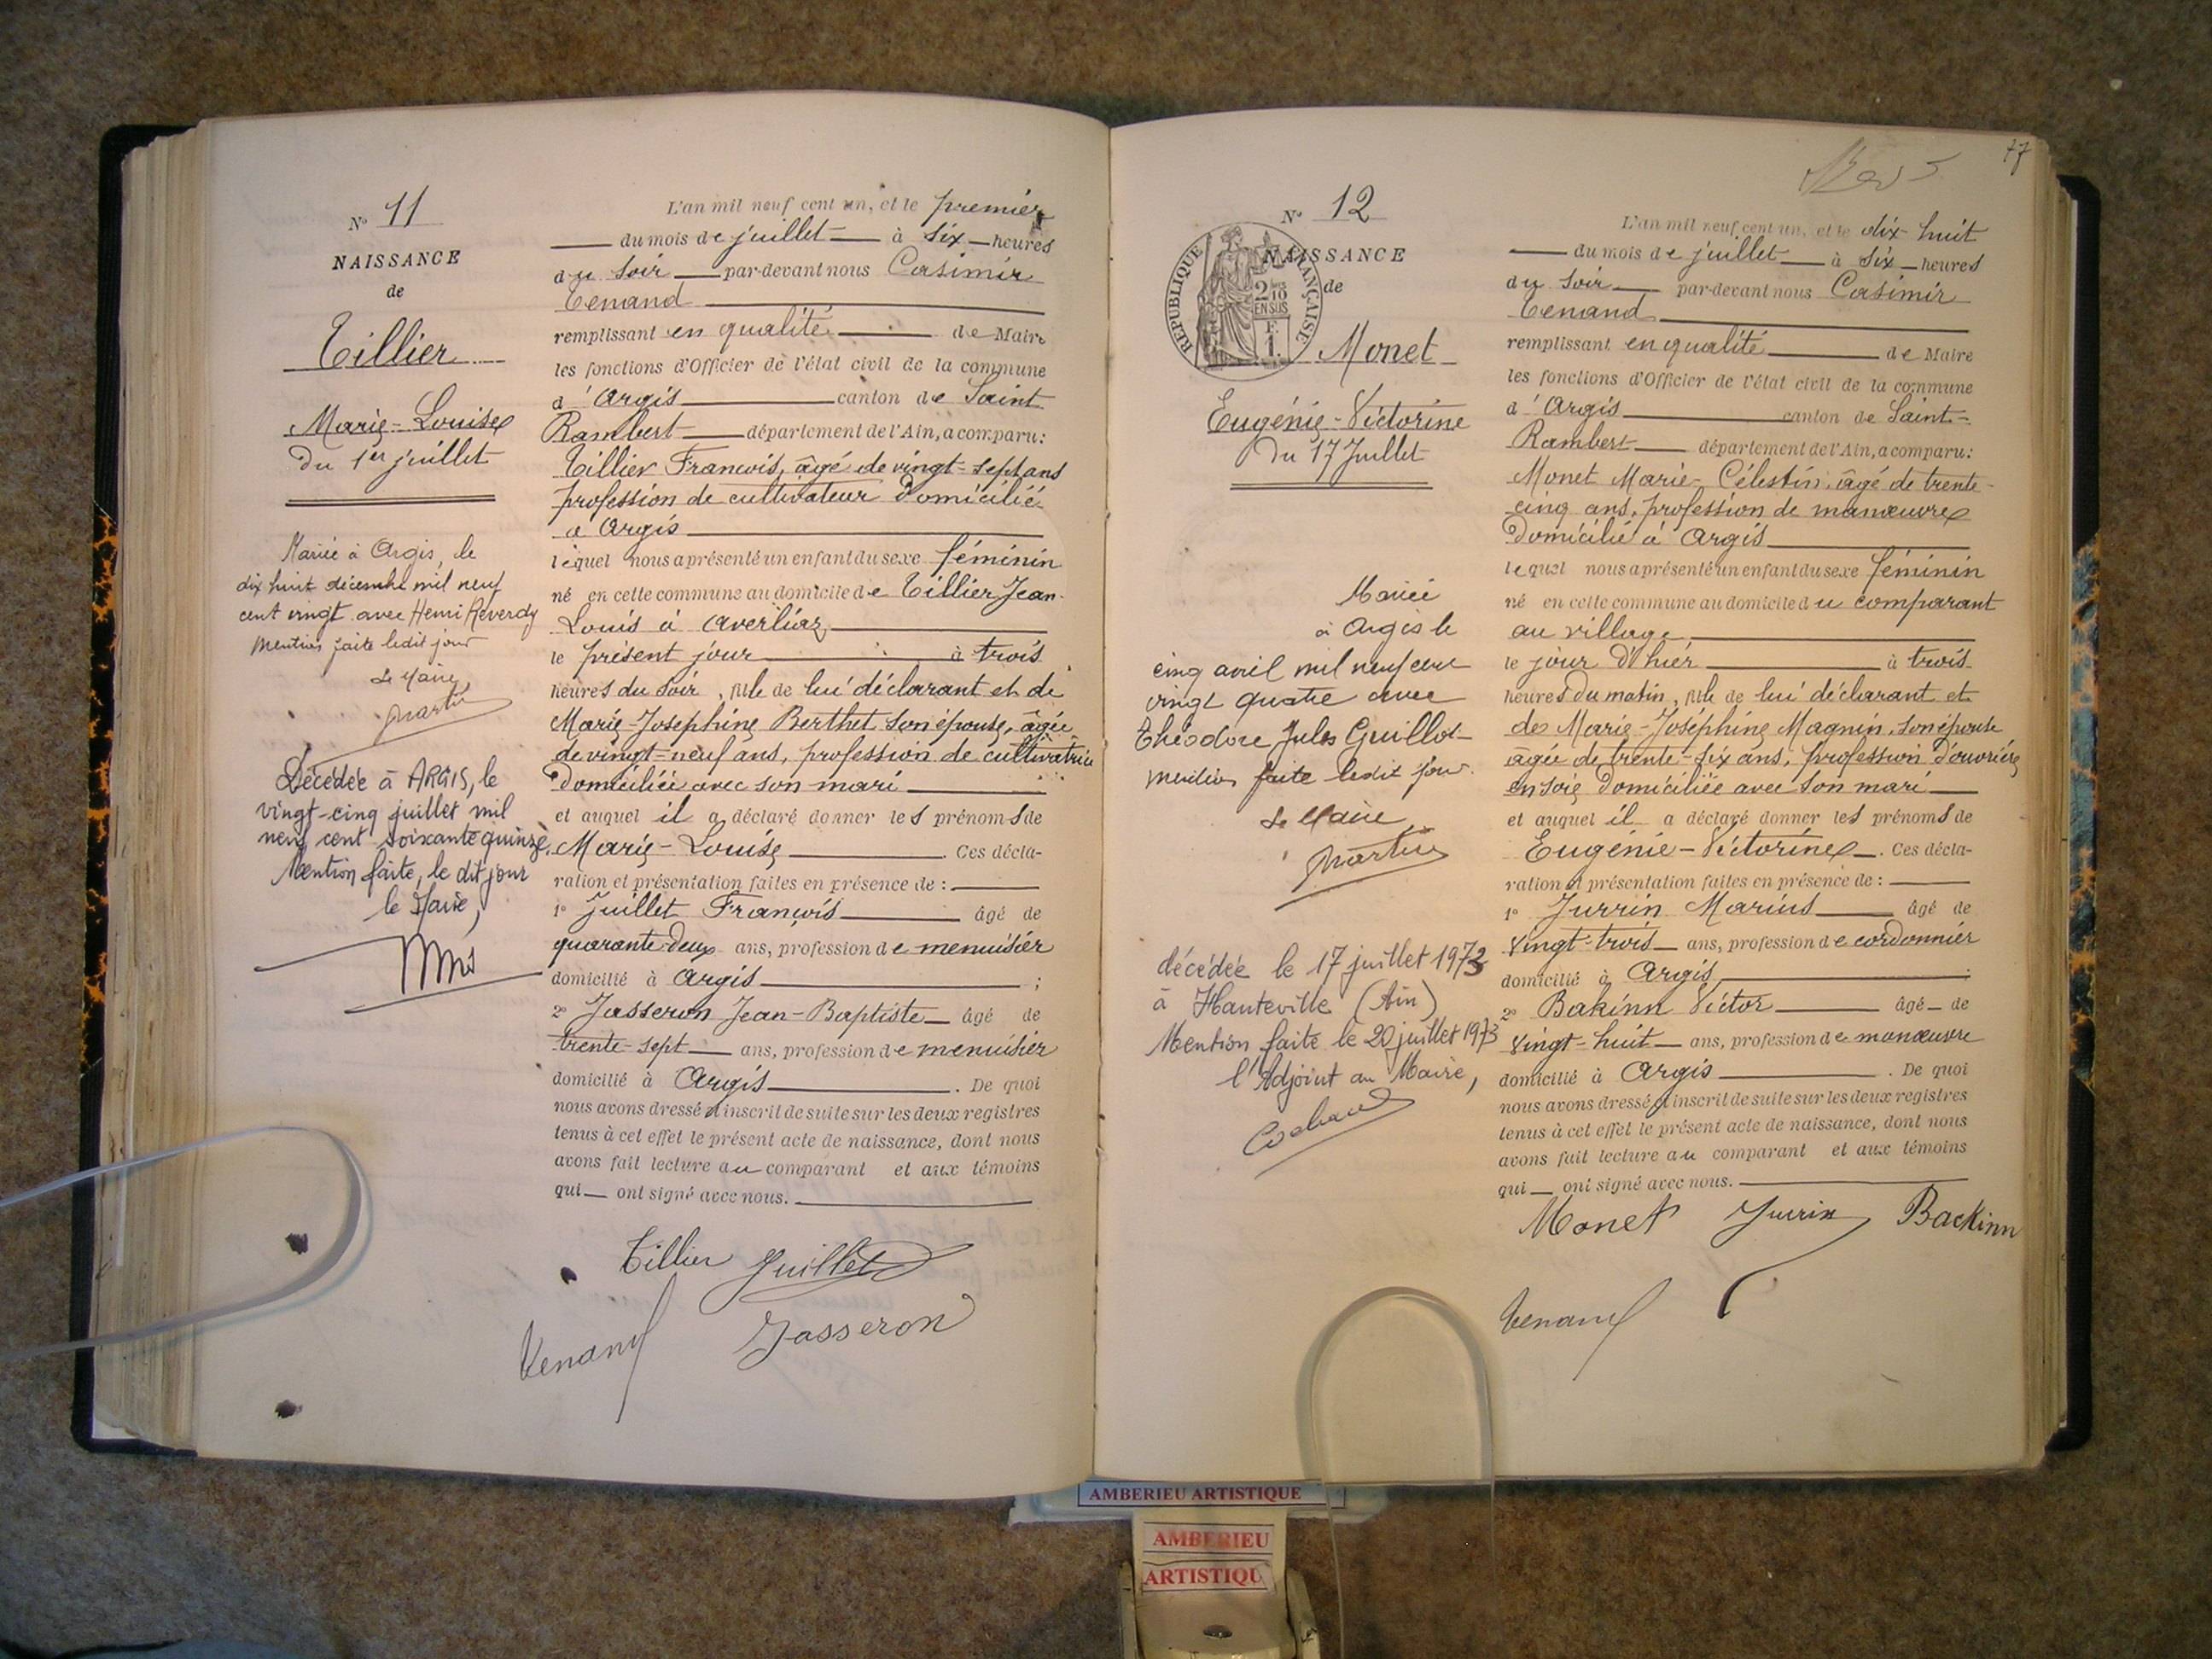 Nº 11
NAISSANCE
de
Tillier
Marie-Louise
Du 1er juillet
Mariée à Argis, le
dix huit décembre mil neuf
cent vingt avec Henri Reverdy
Mention faite ledit jour
Le Maire,
Martin
Décédée à ARGIS, le
vingt-cinq juillet mil
neuf cent soixante quinze.
Mention faite, le dit jour
le Maire,
L'an mil neuf cent un, et le premier
du mois de juillet à six heures
du soir par-devant nous Casimir
Tenand
remplissant en qualité de Maire
les fonctions d'Officier de l'état civil de la commune
d'Argis canton de Saint
Rambert département de l'Ain, a comparu:
Tillier François, âgé de vingt-sept ans
profession de cultivateur domicilié
à Argis
lequel nous a présenté un enfant du sexe féminin
né en cette commune au domicile de Tillier Jean-
Louis à Averliaz
le présent jour à trois
heures du soir, fille de lui déclarant et de
Marie-Josephine Berthet son épouse, âgée
de vingt-neuf ans, profession de cultivatrice
domiciliée avec son mari
et auquel il a déclaré donner les prénoms de
Marie-Louise. Ces décla-
ration et présentation faites en présence de :
1º Juillet François âgé de
quarante-deux ans, profession de menuisier
domicilié à Argis ;
2º Jasseron Jean-Baptiste âgé de
trente-sept ans, profession de menuisier
domicilié à Argis. De quoi
nous avons dressé et inscrit de suite sur les deux registres
tenus à cet effet le présent acte de naissance, dont nous
avons fait lecture au comparant et aux témoins
qui ont signé avec nous.
Tillier Juillet
Tenand Jasseron
77
Nº 12
NAISSANCE
de
RÉPUBLIQUE FRANÇAISE
2/10
EN SUS
F.
1.
Monet
Eugénie-Victorine
Du 17 Juillet
Mariée
à Argis le
cinq avril mil neuf cent
vingt quatre avec
Théodore Jules Guillot
Mention faite ledit jour.
Le Maire
Martin
décédée le 17 juillet 1973
à Hauteville (Ain)
Mention faite le 20 juillet 1973
l'Adjoint au Maire,
L'an mil neuf cent un, et le dix huit
du mois de juillet à six heures
du soir par-devant nous Casimir
Tenand
remplissant en qualité de Maire
les fonctions d'Officier de l'état civil de la commune
d'Argis canton de Saint-
Rambert département de l'Ain, a comparu:
Monet Marie-Célestin, âgé de trente-
cinq ans, profession de manœuvre
domicilié à Argis
lequel nous a présenté un enfant du sexe féminin
né en cette commune au domicile du comparant
au village
le jour d'hier à trois
heures du matin, fille de lui déclarant et
de Marie-Joséphine Magnin, son épouse
âgée de trente-six ans, profession d'ouvrière
en soie domiciliée avec son mari
et auquel il a déclaré donner les prénoms de
Eugénie-Victorine. Ces décla-
ration et présentation faites en présence de :
1º Jurrin Marius âgé de
vingt-trois ans, profession de cordonnier
domicilié à Argis ;
2º Bakinn Victor âgé de
vingt-huit ans, profession de manœuvre
domicilié à Argis. De quoi
nous avons dressé et inscrit de suite sur les deux registres
tenus à cet effet le présent acte de naissance, dont nous
avons fait lecture au comparant et aux témoins
qui ont signé avec nous.
Monet Jurrin Backinn
Tenand
AMBERIEU ARTISTIQUE
AMBERIEU
ARTISTIQU